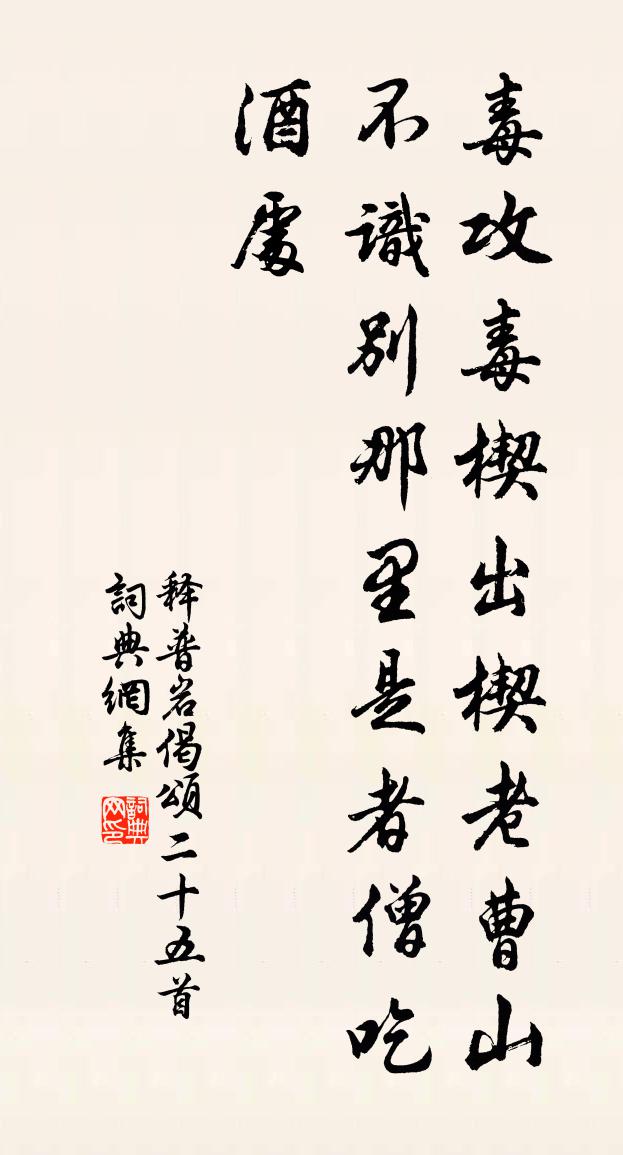 毒攻毒楔出楔老曹山
不識別那里是者僧吃
酒處
释普岩偈頌二十五首
詞典網集
詞典
网印